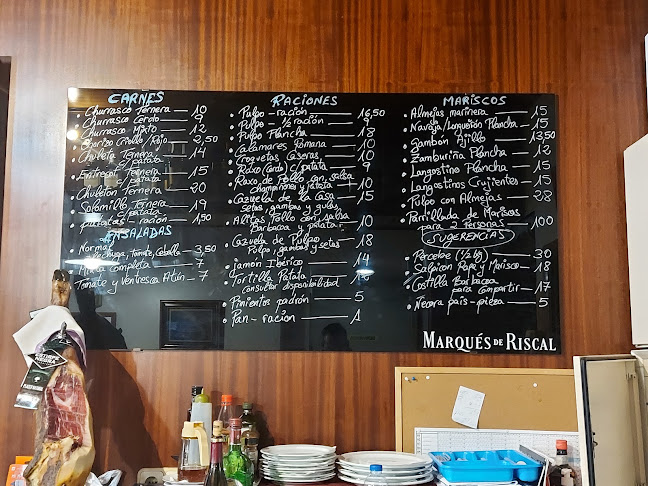 CARNES
Churrasco Ternera — 10
Churrasco Cerdo — 9
Churrasco Mixto — 12
Chorizo Criollo/Rojo 2,50
Chuleta Ternera — 14
c/ patata
Entrecot Ternera — 15
c/ patata
Chuletón Ternera — 20
Solomillo Ternera — 19
c/ patata
Patatas - ración — 1,50
ENSALADAS
Normal
Lechuga, Tomate, Cebolla — 3,50
Mixta completa — 7
Tomate y Ventresca Atún — 7
RACIONES
Pulpo - ración — 16,50
Pulpo - 1/2 ración — 9
Pulpo Plancha — 18
Calamares Romana — 10
Croquetas Caseras — 9
Raxo (Cerdo) c/ patata — 9
Raxo de Pollo con salsa
champiñones y patata — 10
Cazuela de la Casa — 15
setas, gambas y gulas
Alitas Pollo con salsa
Barbacoa y patata — 10
Cazuela de Pulpo — 18
Pulpo, gambas y setas
Jamón Ibérico — 14
Tortilla Patata
Consultar disponibilidad
Pimientos padrón — 5
Pan - ración — 1
MARISCOS
Almejas marinera — 15
Navaja/Longueirón Plancha — 15
Gambón Ajillo — 13,50
Zamburiña Plancha — 12
Langostino Plancha — 15
Langostinos Crujientes — 15
Pulpo con Almejas — 28
Parrillada de Mariscos
para 2 Personas — 100
SUGERENCIAS
Percebe (1/2 kg) — 30
Salpicon Pulpo y Marisco — 18
Costilla Barbacoa
para Compartir — 17
Nécora país - pieza — 5
MARQUÉS DE RISCAL